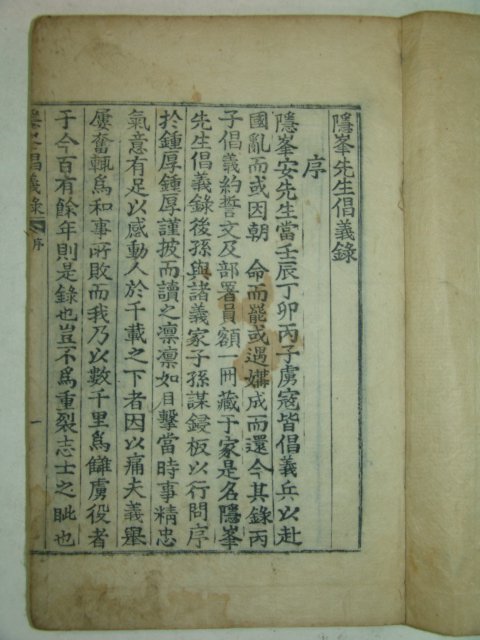 隱峯先生倡義錄
序
隱峯安先生當壬辰丁卯丙子虜寇皆倡義兵以赴
國亂而或因朝 命而罷或遇媾成而還今其錄丙
子倡義約誓文及部署員額一冊藏于家是名隱峯
先生倡義錄後孫與諸義家子孫謀鋟板以行問序
於鍾厚鍾厚謹披而讀之凛凛如目擊當時事精忠
氣意有足以感動人於千載之下者因以痛夫義擧
屢奮輒爲和事所敗而我乃以數千里爲讎虜役者
于今百有餘年則是錄也豈不爲重裂志士之眦也
倡義錄 序 一